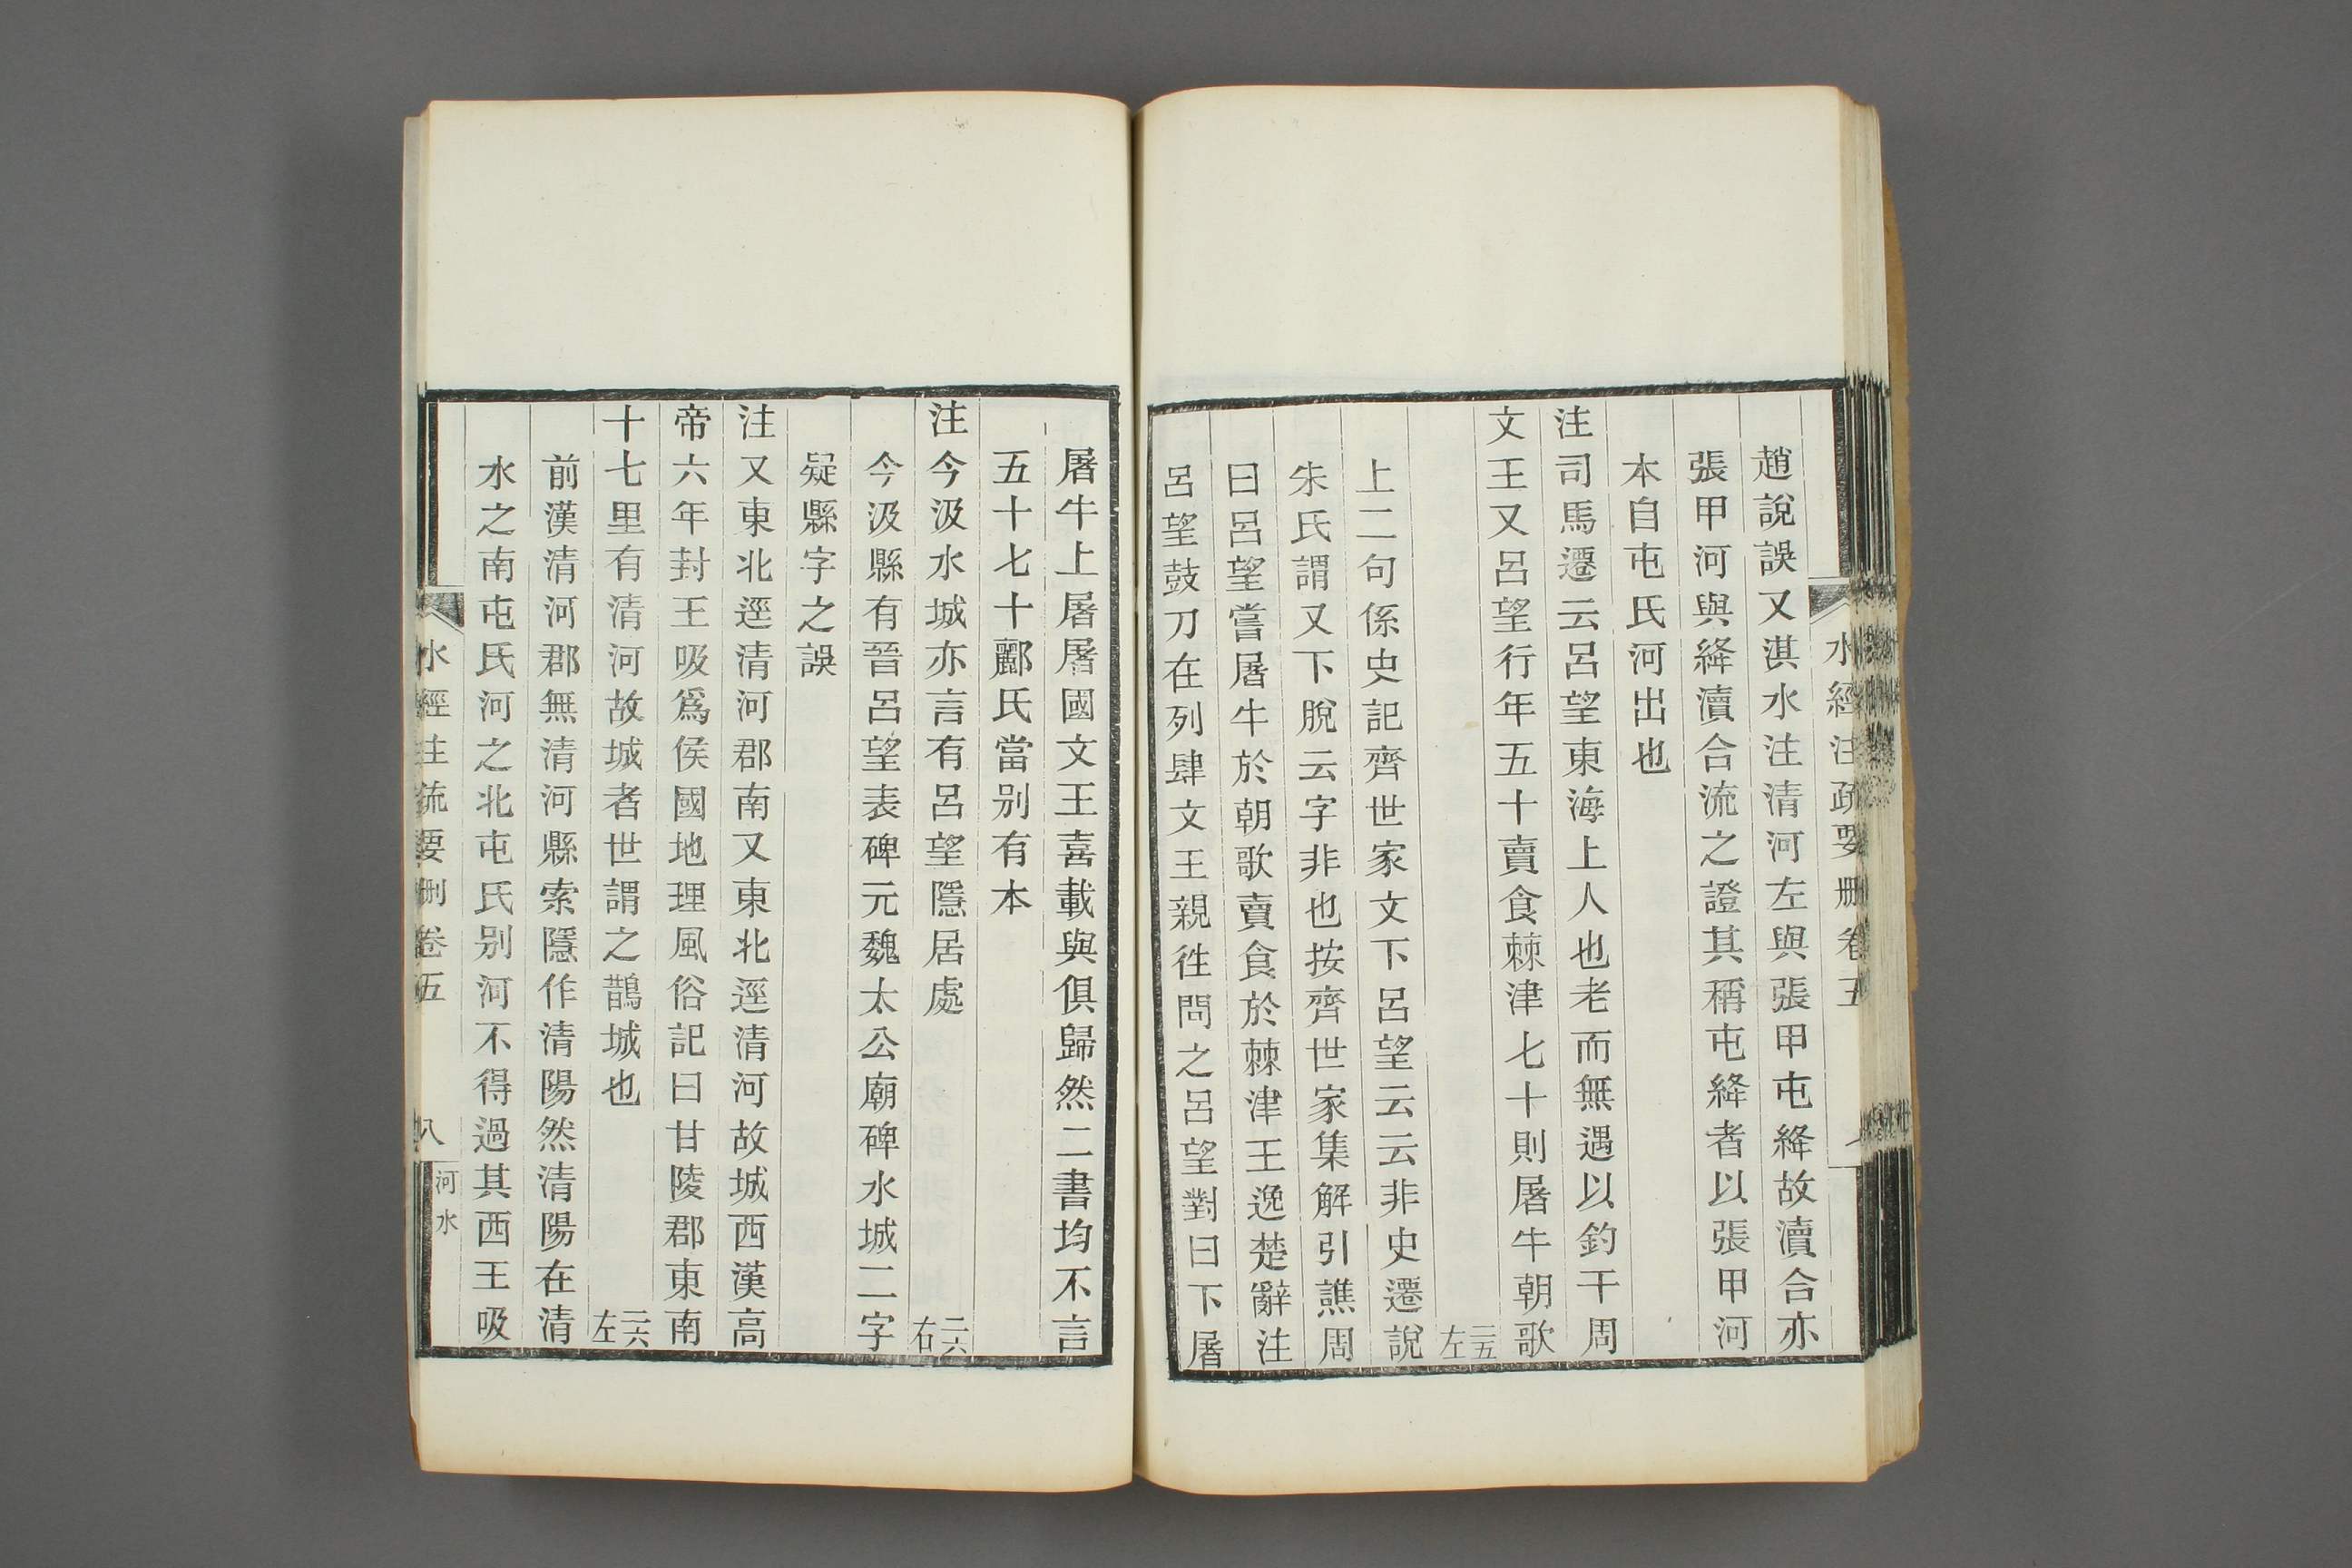 水經注疏要刪卷五
趙說誤又淇水注清河左與張甲屯絳故瀆合亦
張甲河與絳瀆合流之證其稱屯絳者以張甲河
本自屯氏河出也
注司馬遷云呂望東海上人也老而無遇以釣干周
文王又呂望行年五十賣食棘津七十則屠牛朝歌
二五左
上二句係史記齊世家文下呂望云云非史遷說
朱氏謂又下脫云字非也按齊世家集解引譙周
曰呂望嘗屠牛於朝歌賣食於棘津王逸楚辭注
呂望鼓刀在列肆文王親往問之呂望對曰下屠
屠牛上屠屠國文王喜載與俱歸然二書均不言
五十七十酈氏當別有本
注今汲水城亦言有呂望隱居處二六右
今汲縣有晉呂望表碑元魏太公廟碑水城二字
疑縣字之誤
注又東北逕清河郡南又東北逕清河故城西漢高
帝六年封王吸爲侯國地理風俗記曰甘陵郡東南
十七里有清河故城者世謂之鵲城也二六左
前漢清河郡無清河縣索隱作清陽然清陽在清
水之南屯氏河之北屯氏別河不得過其西王吸
水經注疏要刪卷五 八 河水